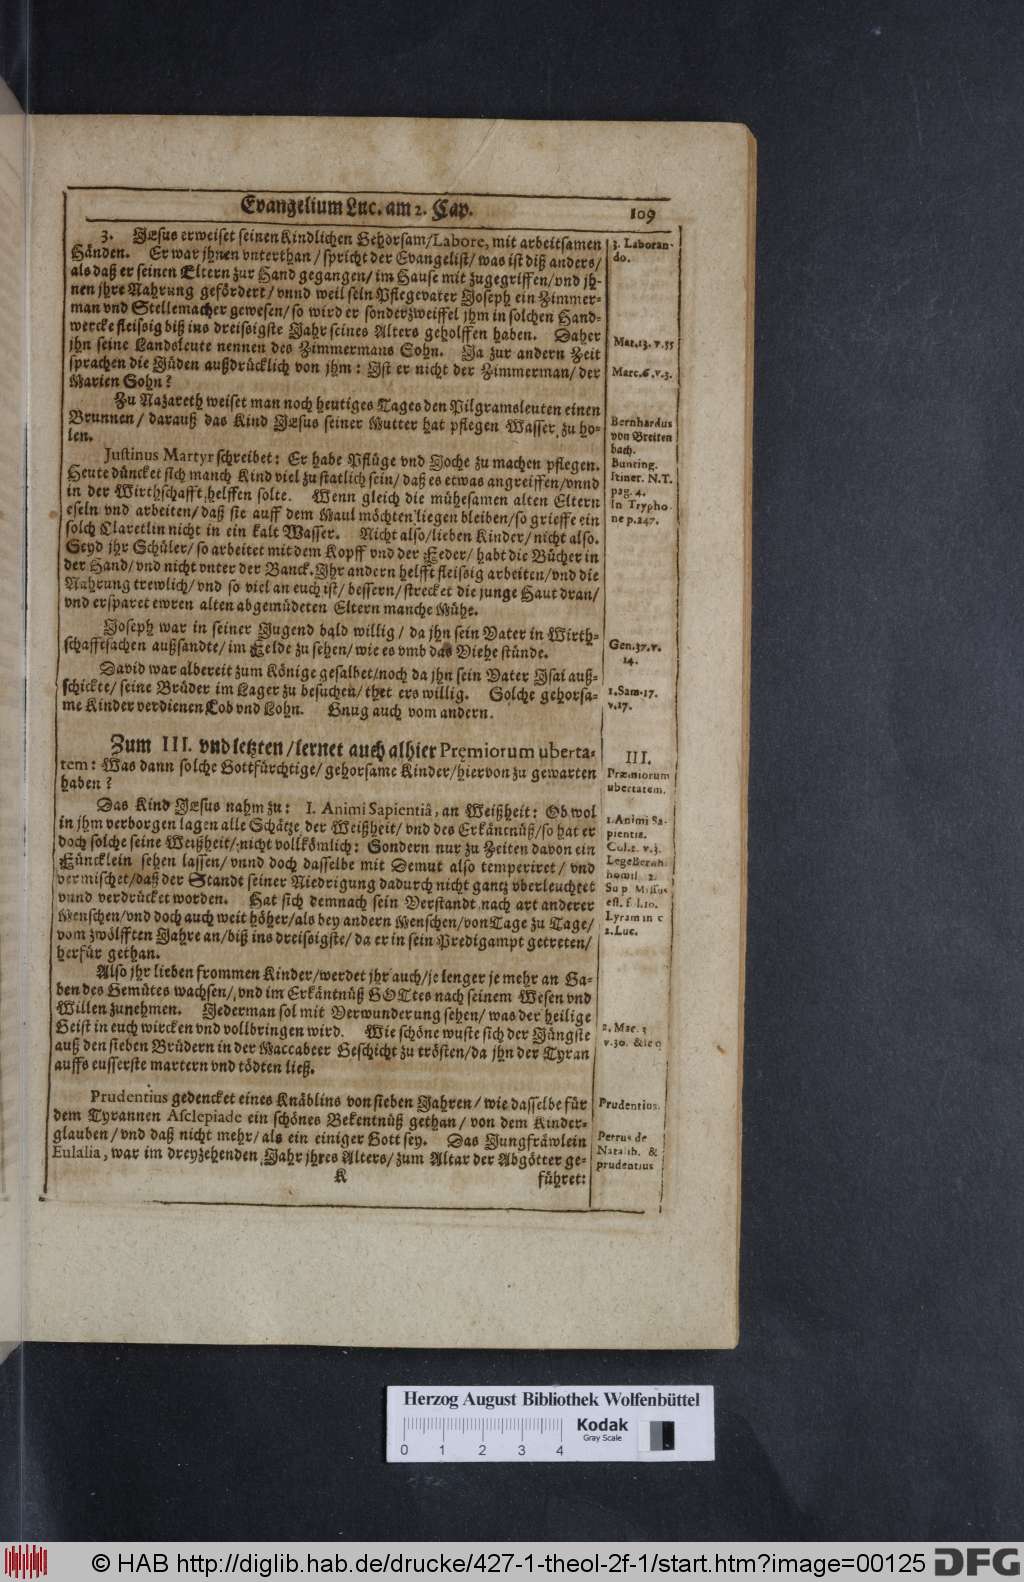 Evangelium Luc. am 2. Cap.
109
3. JEsus erweiset seinen Kindlichen Gehorsam/Labore, mit arbeitsamen
Händen. Er war jhnen vnterthan/ spricht der Evangelist/ was ist diß anders/
als daß er seinen Eltern zur Hand gegangen/ im Hause mit zugegriffen/vnd jh-
nen jhre Nahrung gefördert/ vnnd weil sein Pflegevater Joseph ein Zimmer-
man vnd Stellemacher gewesen/ so wird er sonder zweiffel jhm in solchen Hand-
wercke fleissig biß ins dreissigste Jahr seines Alters geholffen haben. Daher
jhn seine Landsleute nennen des Zimmermans Sohn. Ja zur andern Zeit
sprachen die Jüden außdrücklich von jhm: Ist er nicht der Zimmerman/ der
Marien Sohn?
Zu Nazareth weiset man noch heutiges Tages den Pilgramsleuten einen
Brunnen/ darauß das Kind JEsus seiner Mutter hat pflegen Wasser zu ho-
len.
Justinus Martyr schreibet: Er habe Pflüge vnd Joche zu machen pflegen.
Heute düncket sich manch Kind viel zu statlich sein/ daß es etwas angreiffen/vnnd
in der Wirthschafft helffen solte. Wenn gleich die mühesamen alten Eltern
eseln vnd arbeiten/ daß sie auff dem Maul möchten liegen bleiben/ so grieffe ein
solch Claretlin nicht in ein kalt Wasser. Nicht also/ lieben Kinder/ nicht also.
Seyd jhr Schüler/ so arbeitet mit dem Kopff vnd der Feder/ habt die Bücher in
der Hand/ vnd nicht vnter der Banck. Ihr andern helfft fleissig arbeiten/ vnd die
Nahrung trewlich/ vnd so viel an euch ist/ bessern/ strecket die junge Haut dran/
vnd ersparet ewren alten abgemüdeten Eltern manche Mühe.
Joseph war in seiner Jugend bald willig/ da jhn sein Vater in Wirth-
schafftsachen außsandte/ im Felde zu sehen/ wie es vmb das Viehe stünde.
David war albereit zum Könige gesalbet/noch da jhn sein Vater Isai auß-
schickte/ seine Brüder im Lager zu besuchen/ thet ers willig. Solche gehorsa-
me Kinder verdienen Lob vnd Lohn. Gnug auch vom andern.
Zum III. vnd letzten/ lernet auch alhier Pręmiorum uberta-
tem: Was dann solche Gottfürchtige/ gehorsame Kinder/ hiervon zu gewarten
haben?
Das Kind JEsus nahm zu: 1. Animi Sapientiâ, an Weißheit: Ob wol
in jhm verborgen lagen alle Schätze der Weißheit/ vnd des Erkäntnüß/ so hat er
doch solche seine Weißheit/ nicht vollkömlich: Sondern nur zu Zeiten davon ein
Füncklein sehen lassen/ vnnd doch dasselbe mit Demut also temperiret/ vnd
vermischet/ daß der Standt seiner Niedrigung dadurch nicht gantz vberleuchtet
vnnd verdrücket worden. Hat sich demnach sein Verstandt nach art anderer
Menschen/ vnd doch auch weit höher/als bey andern Menschen/ von Tage zu Tage/
vom zwölfften Jahre an/ biß ins dreissigste/ da er in sein Predigampt getreten/
herfür gethan.
Also jhr lieben frommen Kinder/werdet jhr auch/je lenger je mehr an Ga-
ben des Gemütes wachsen/ vnd im Erkäntnüß GOTtes nach seinem Wesen vnd
Willen zunehmen. Jederman sol mit Verwunderung sehen/ was der heilige
Geist in euch wircken vnd vollbringen wird. Wie schöne wuste sich der Jüngste
auß den sieben Brüdern in der Maccabeer Geschicht zu trösten/ da jhn der Tyran
auffs eusserste martern vnd tödten ließ.
Prudentius gedencket eines Knäblins von sieben Jahren/ wie dasselbe für
dem Tyrannen Asclepiade ein schönes Bekentnüß gethan/ von dem Kinder-
glauben/ vnd daß nicht mehr/ als ein einiger Gott sey. Das Jungfräwlein
Eulalia, war im dreyzehenden Jahr jhres Alters/ zum Altar der Abgötter ge-
K
führet:
3. Laboran-
do.
Mat.13. v.55
Marc.6.v.3.
Bernhardus
von Breiten
bach.
Bunting.
Itiner. N.T.
pag. 4.
In Trypho
ne p.247.
Gen.37.v.
14.
1.Sam.17.
v.17.
III.
Præmiorum
ubertatem.
1.Animi Sa-
pientia.
Col.2. v.3.
Lege Bernh.
homil. 2.
Sup. Missus
est. fol.10.
Lyram in c
2.Luc.
2. Mac.
v.30.
Prudentius.
Petrus de
Natalib. &
prudentius
Herzog August Bibliothek Wolfenbüttel
Kodak
Gray Scale
0 1 2 3 4
© HAB http://diglib.hab.de/drucke/427-1-theol-2f-1/start.htm?image=00125
DFG